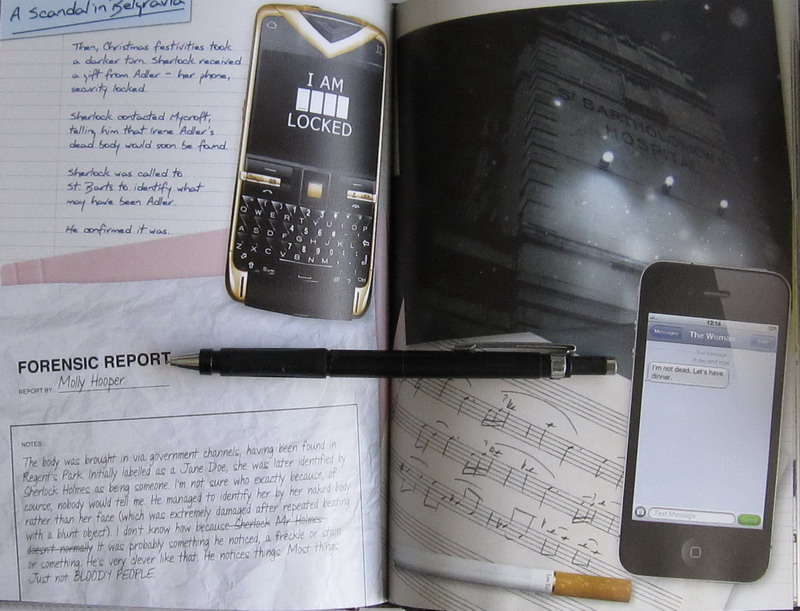 A Scandal in Belgravia
Then, Christmas festivities took
a darker turn. Sherlock received
a gift from Adler – her phone,
security locked.
Sherlock contacted Mycroft,
telling him that Irene Adler's
dead body would soon be found.
Sherlock was called to
St. Barts to identify what
may have been Adler.
He confirmed it was.
I AM
LOCKED
FORENSIC REPORT
REPORT BY: Molly Hooper
NOTES:
The body was brought in via government channels, having been found in
Regent's Park. Initially labelled as a Jane Doe, she was later identified by
Sherlock Holmes as being someone. I'm not sure who exactly because, of
course, nobody would tell me. He managed to identify her by her naked body
rather than her face (which was extremely damaged after repeated beating
with a blunt object). I don't know how because Sherlock Mr Holmes
doesn't normally It was probably something he noticed, a freckle or stain
or something. He's very clever like that. He notices things. Most things.
Just not BLOODY PEOPLE.
ST BARTHOLOMEW'S
HOSPITAL
12:14
Messages
The Woman
I'm not dead. Let's have
dinner.
Text Message